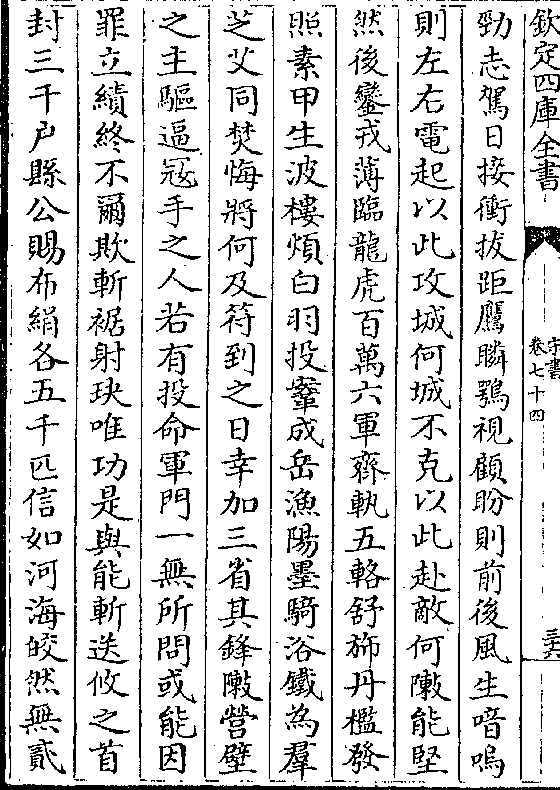 欽定四庫全書
宋書
卷七十四
三六
勁志駕日接衝拔距鷹瞵鶚視顧盼則前後風生喑嗚
則左右電起以此攻城何城不克以此赴敵何陳能堅
然後鑾戎薄臨龍虎百萬六軍齊軌五輅舒斾丹檻發
照素甲生波樓煩白羽投鞌成岳漁陽墨騎浴鐵為羣
芝艾同焚悔將何及符到之日幸加三省其鋒陳營壁
之主驅逼寇手之人若有投命軍門一無所問或能因
罪立績終不爾欺斬裾射玦唯功是與能斬送攸之首
封三千户縣公賜布絹各五千匹信如河海皎然無貳